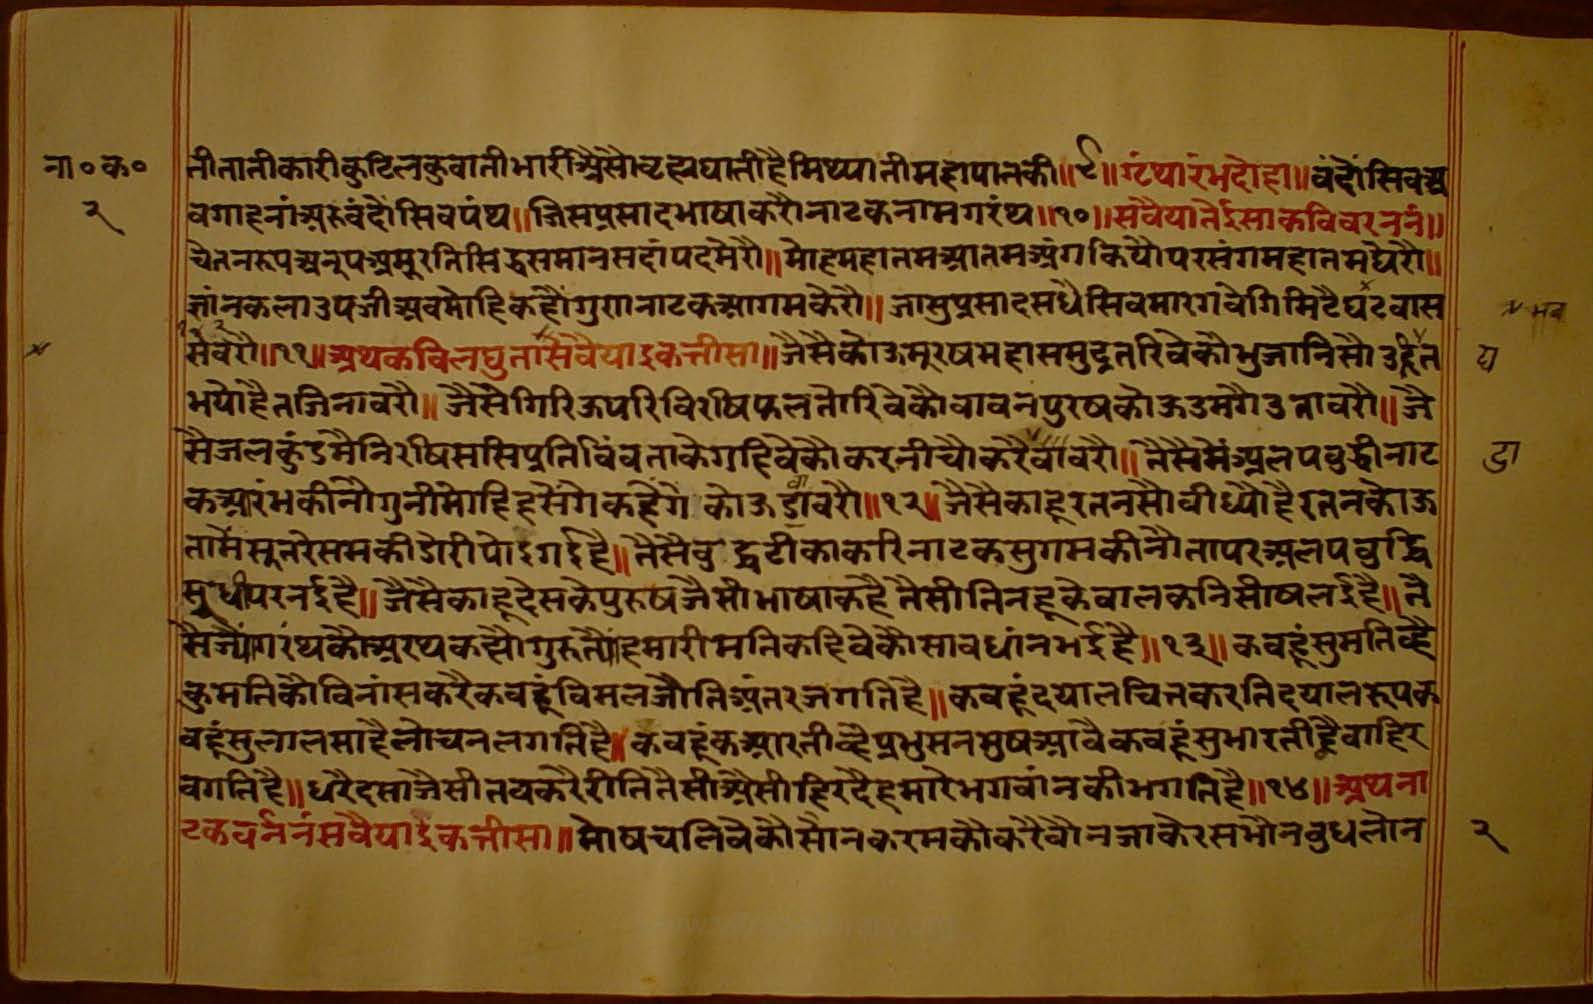 ना॰क॰
२
तीतातीकारीकुटिलकुवातीभारीअैसौव्रह्मघातीहैमिथ्यातीमहापातकी॥९॥ग्रंथारंभदोहा॥वंदौंसिवअ
वगाहनांअरुवंदौंसिवपंथ॥जिसप्रसादभाषाकरौनाटकनामगरंथ॥१०॥सवैयातेईसाकविवरननं॥
चेतनरूपअनुपअमुरतिसिद्धसमानसदांपदमेरौ॥मोहमहातमआतमअंगकियौपरसंगमहातमघेरौ॥
ज्ञांनकलाउपजीअवमोहिकहौंगुणनाटकआगमकेरौ॥जासुप्रसादसधैसिवमारगवेगिमिटैघटवास
सवेरौ॥११॥अथकविलघुतासवैयाइकत्तीसा॥जैसैकोऊमुरषमहासमुद्रतरिवेकौभुजानिसौउद्दित
भयोहैतजिनावरौ॥जैसेगिरिऊपरिविरीषफलतोरिवेकौवावनपुरषकोऊउमगैउतावरौ॥जै
सैजलकुंडमैनिरीषिससिप्रतिविंवताकेगहिवेकौकरनीचौकरैवावरौ॥तैसैमेंअलपवुद्धीनाट
कआरंभकीनौगुनीमोहिहसेंगेकहेंगे कोऊडावरौ॥१२॥जैसैकाहूरतनसौवीध्यौहैरतनकोऊ
तामेंसूतरेसमकीडोरीपोइगईहै॥तैसैवुद्धटीकाकरिनाटकसुगमकीनौतापरअलपवुद्धि
सुधीपरनईहै॥जैसेकाहूदेसकेपुरुषजैसीभाषाकहैतैसीतिनहूकेवालकनिसीषलईहै॥तै
सैज्योंगरंथकोअरथकह्यौगुरुत्योंहमारीमतिकहिवेकौसावधांनभईहै॥१३॥कवहूंसुमतिव्है
कुमतिकौविनांसकरैकवहूंविमलजोतिअंतरजगतिहै॥कवहूंदयालचितकरतिदयालरूपक
वहूंसुलालसाहैलोचनलगतिहै॥कवहूंकआरतीव्हैप्रभुसनमुषआवैकवहूंसुभारतीव्हैवाहिर
वगतिहै॥धरैदसाजैसीतवकरैरीतितैसीअैसीहिरदैहमारेभगवांनकीभगतिहै॥१४॥अथना
टकवर्ननंसवैयाइकत्तीसा॥मोषचलिवेकौसौनकरमकौकरैवौनजाकेरसभौनवुधलोन
२